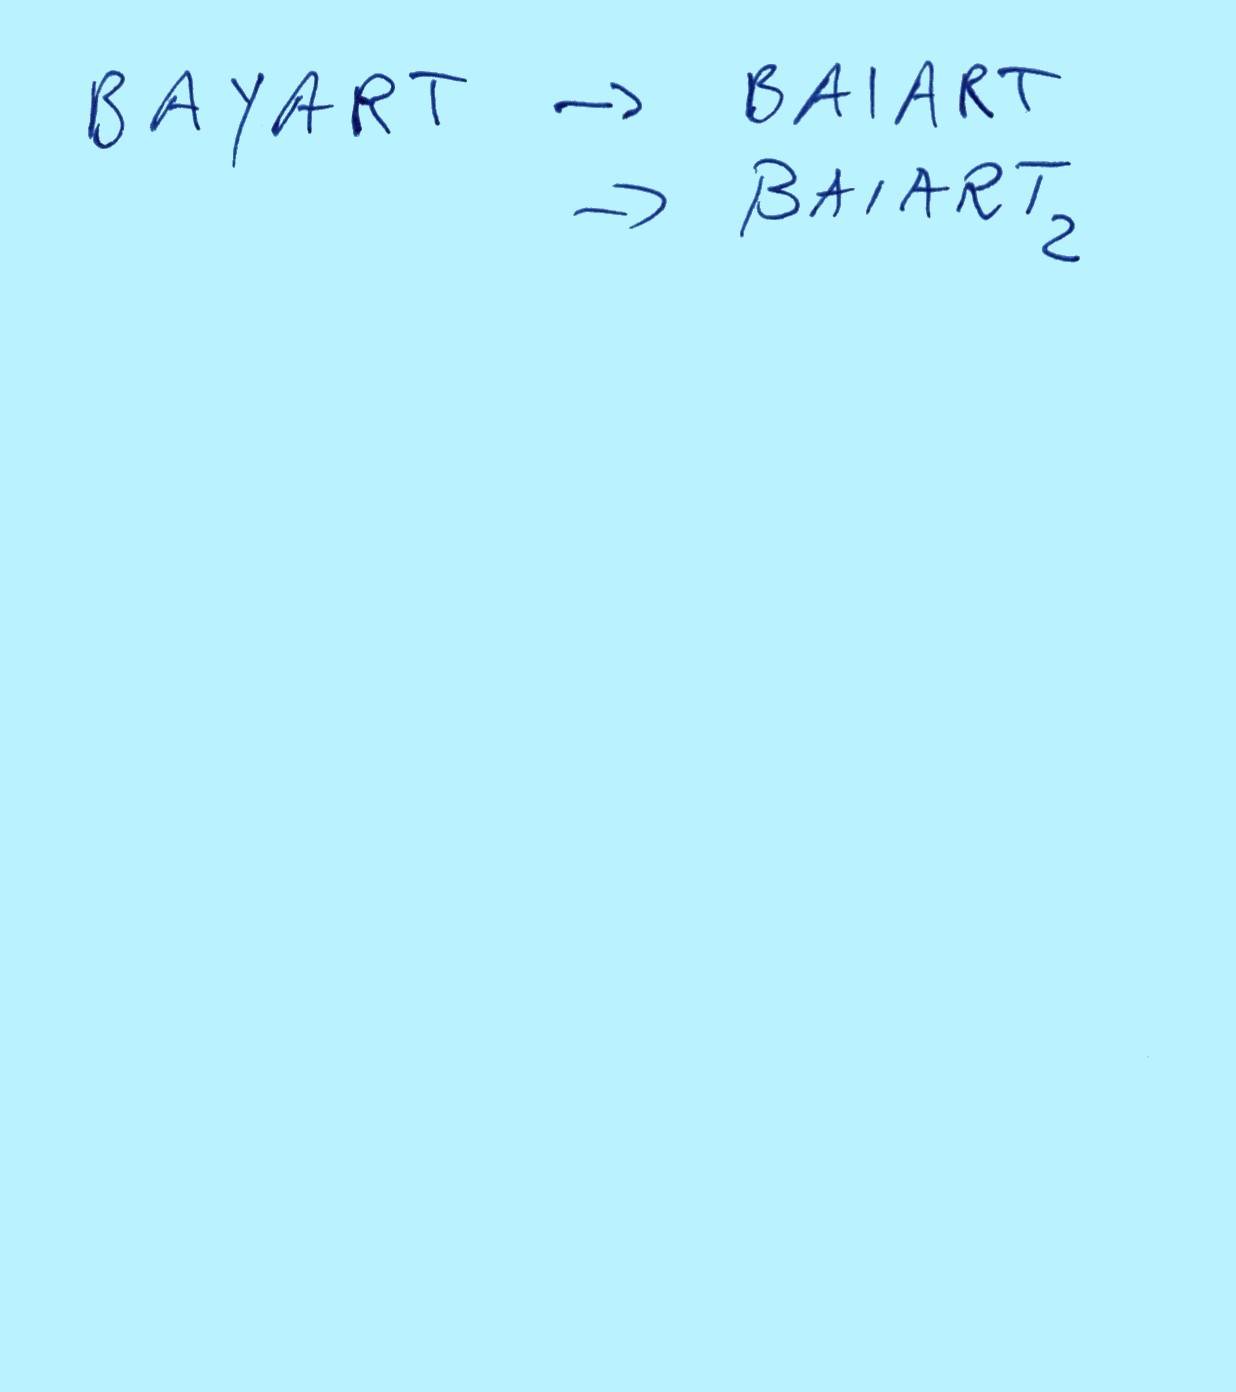 BAYART → BAIART
→ BAIART₂